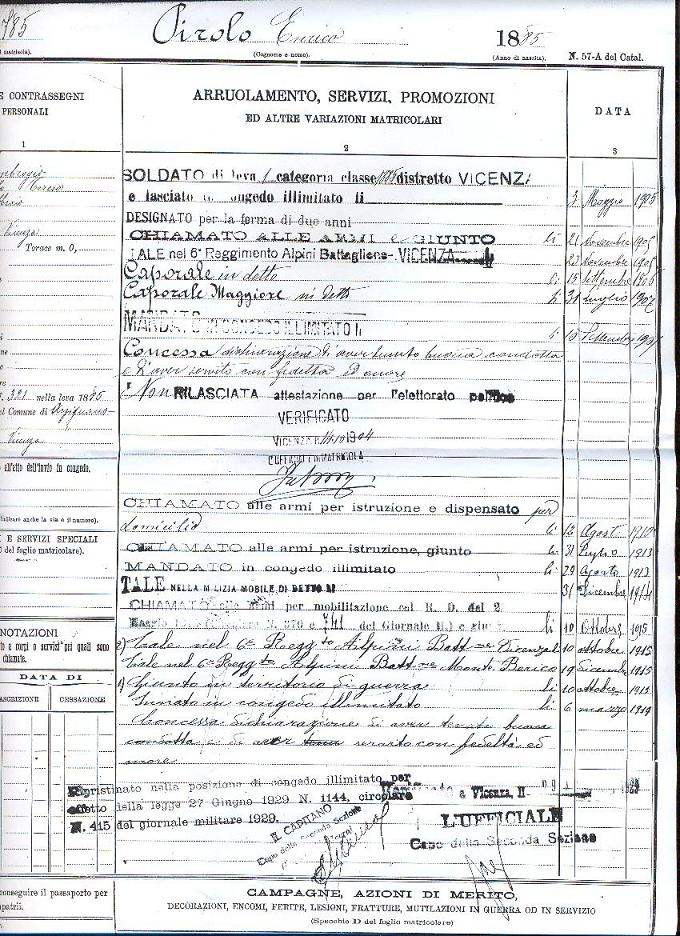 785
Pirolo Enrico
1885
(Cognome e nome).
(Anno di nascita).
N. 57-A del Catal.
E CONTRASSEGNI
PERSONALI
1
ARRUOLAMENTO, SERVIZI, PROMOZIONI
ED ALTRE VARIAZIONI MATRICOLARI
2
DATA
3
Vicenza
Torace m. 0,
321 nella leva 1885
el Comune di
Vicenza
all'atto dell'invio in congedo.
I E SERVIZI SPECIALI
del foglio matricolare).
NOTAZIONI
to a corpi o servizi pei quali sono
chiamate.
DATA DI
CESSAZIONE
conseguire il passaporto per
SOLDATO di leva 1 categoria classe 1885 distretto VICENZ
e lasciato in congedo illimitato li 3 Maggio 1905
DESIGNATO per la ferma di due anni
CHIAMATO ALLE ARMI e GIUNTO li 21 novembre 1905
TALE nel 6° Reggimento Alpini Battaglione VICENZA 22 novembre 1905
Caporale in detto li 15 settembre 1906
Caporale Maggiore in detto li 31 luglio 1907
MANDATO IN CONGEDO ILLIMITATO li 10 Settembre 1907
Concessa dichiarazione di aver tenuto buona condotta
e d'aver servito con fedeltà ed onore
Non RILASCIATA attestazione per l'elettorato politico
VERIFICATO
VICENZA
CHIAMATO alle armi per istruzione e dispensato per
domicilio li 12 Agost. 1910
CHIAMATO alle armi per istruzione, giunto li 31 Luglio 1913
MANDATO in congedo illimitato li 29 Agosto 1913
TALE NELLA MILIZIA MOBILE, DI DETTO 31 Dicembre 1914
CHIAMATO alle armi per mobilitazione col R. D. del 2
Maggio del Giornale M.) e giunto li 10 Ottobre 1915
2) Tale nel 6° Regg.to Alpini Batt.ne Vicenza li 10 ottobre 1915
Tale nel 6° Regg.to Alpini Batt.ne Monte Berico 19 Dicembre 1915
1) Giunto in territorio di guerra li 10 ottobre
in congedo illimitato li 6 marzo 1919
Concessa dichiarazione di aver tenuto buona
condotta e di aver servito con fedeltà ed
onore
Ripristinato nella posizione di congedo illimitato per
effetto della legge 27 Giugno 1929 N. 1144, circolare
N. 415 del giornale militare 1929.
e Vicenza, li 1929
IL CAPITANO
Capo della seconda Sezione
L'UFFICIALE
Capo della Seconda Sezione
CAMPAGNE, AZIONI DI MERITO,
DECORAZIONI, ENCOMI, FERITE, LESIONI, FRATTURE, MUTILAZIONI IN GUERRA OD IN SERVIZIO
(Specchio D del foglio matricolare)